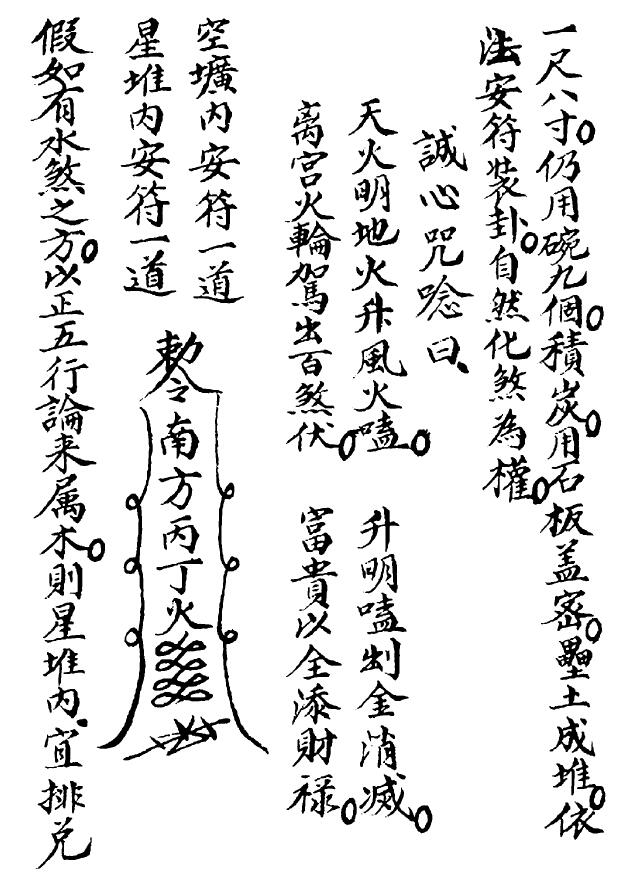 一尺八寸。仍用碗九個。積炭。用石板盖密。壘土成堆。依
法安符装卦。自然化煞為權。
誠心咒唸曰、
天火明地火升風火嗑。
升明嗑剋金消滅。
离宫火輪駕出百煞伏。
富貴以全添財禄。
空壙内安符一道
星堆内安符一道
勅令南方丙丁火
假如有水煞之方。以正五行論来属木。則星堆内、宜排兑